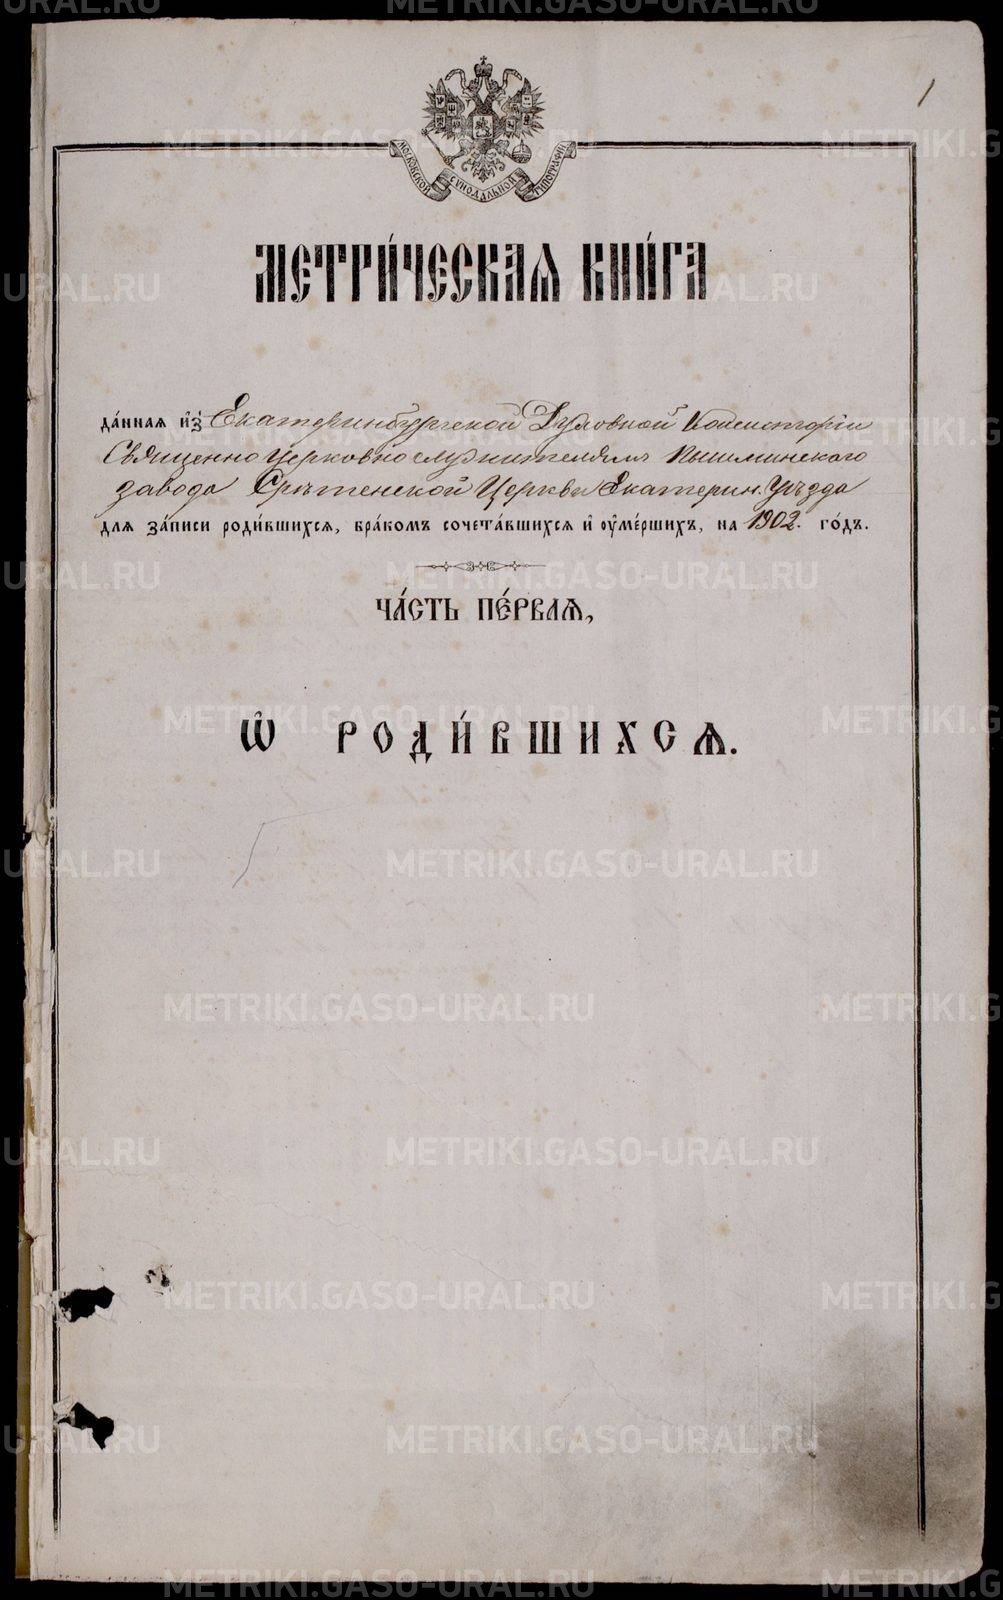 1
МОСКОВСКОЙ СѴНОДАЛЬНОЙ ТИПОГРАФІИ
МЕТРИ́ЧЕСКАѦ КНИ́ГА
да́нная и҆з̾ Екатеринбургской Духовной Консисторіи
Священно церковно служителямъ Пышминскаго
завода Срѣтенской Церкви Екатерин. Уѣзда
для за́писи роди́вшихся, бра́комъ сочета́вшихся и҆ ᲂу҆ме́ршихъ, на 1902. го́дъ.
ЧА́СТЬ ПЕ́РВАѦ,
Ѡ҆ РОДИ́ВШИХСѦ.
METRIKI.GASO-URAL.RU